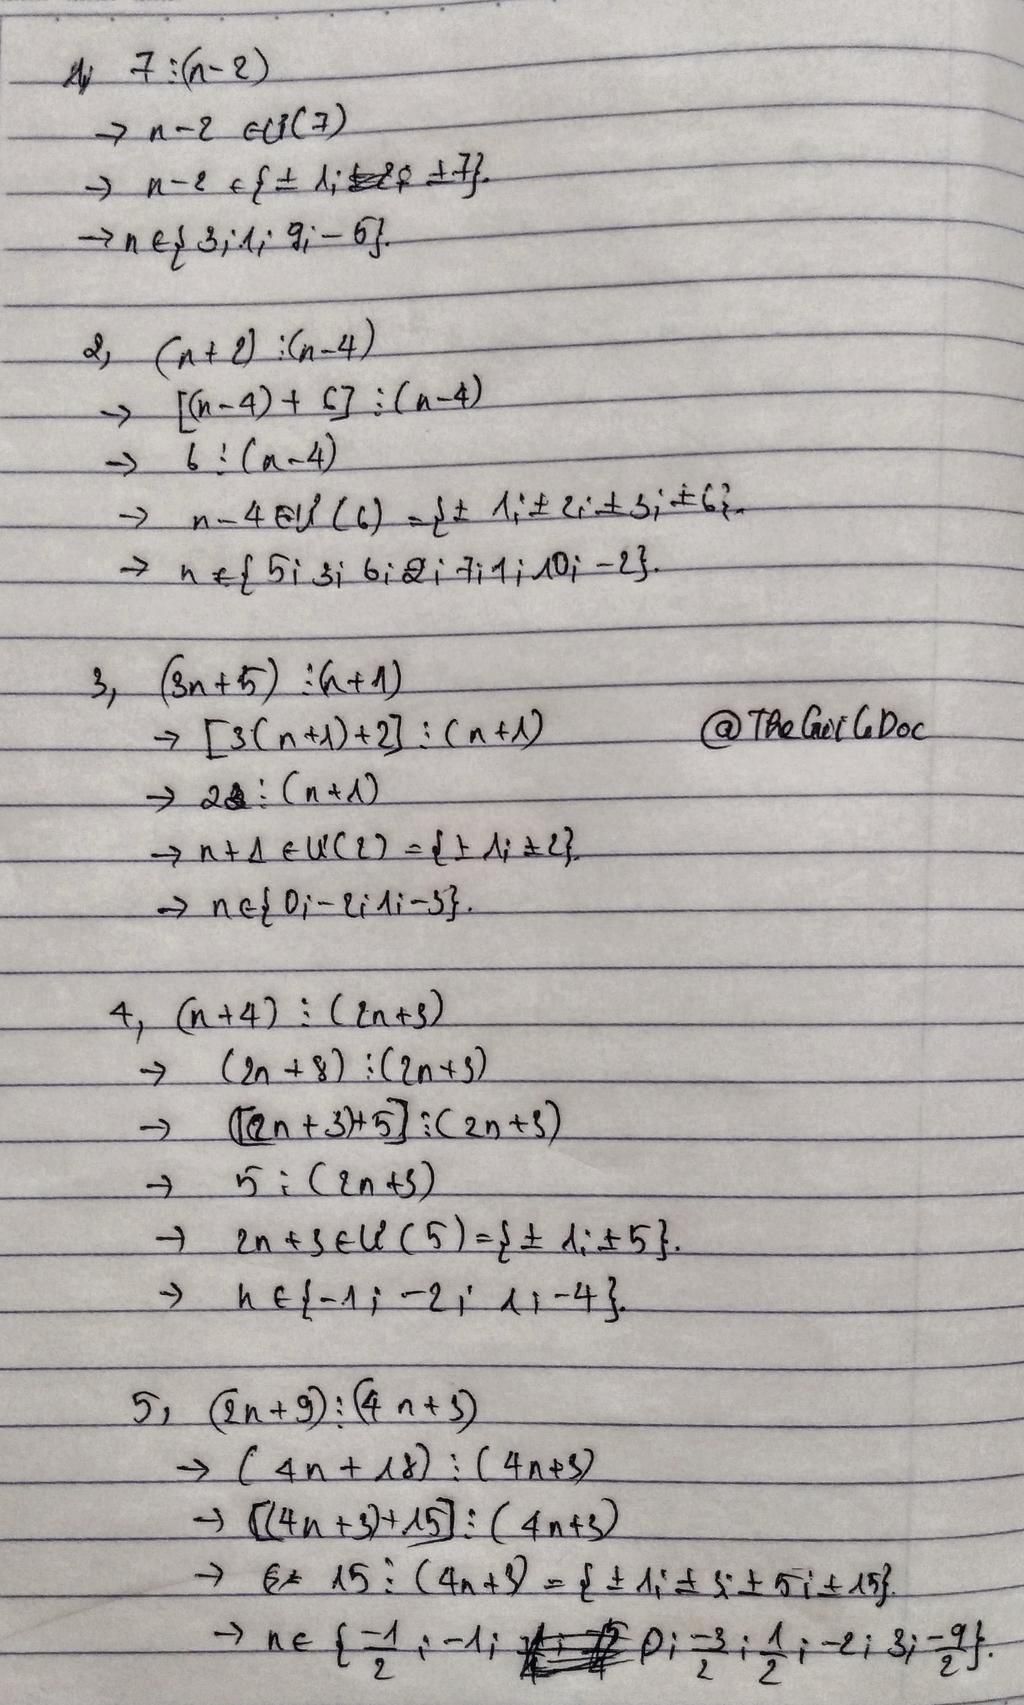 1, 7 ⋮ (n-2)
→ n-2 ∈ Ư(7)
→ n-2 ∈ {± 1; ±7}.
→ n ∈ {3; 1; 9; -5}.
2, (n+2) ⋮ (n-4)
→ [(n-4) + 6] ⋮ (n-4)
→ 6 ⋮ (n-4)
→ n-4 ∈ Ư(6) = {± 1; ± 2; ± 3; ± 6}.
→ n ∈ {5; 3; 6; 2; 7; 1; 10; -2}.
3, (3n+5) ⋮ (n+1)
→ [3(n+1)+2] ⋮ (n+1)
@TheGioiCoDoc
→ 2 ⋮ (n+1)
→ n+1 ∈ Ư(2) = {± 1; ±2}.
→ n ∈ {0; -2; 1; -3}.
4, (n+4) ⋮ (2n+3)
→ (2n+8) ⋮ (2n+3)
→ [(2n+3)+5] ⋮ (2n+3)
→ 5 ⋮ (2n+3)
→ 2n+3 ∈ Ư(5) = {± 1; ±5}.
→ n ∈ {-1; -2; 1; -4}.
5, (2n+9) ⋮ (4n+3)
→ (4n+18) ⋮ (4n+3)
→ [(4n+3)+15] ⋮ (4n+3)
→ 15 ⋮ (4n+3) = {± 1; ± 3; ± 5; ± 15}.
→ n ∈ {-1/2; -1; 0; -3/2; 1/2; -2; 3; -9/2}.